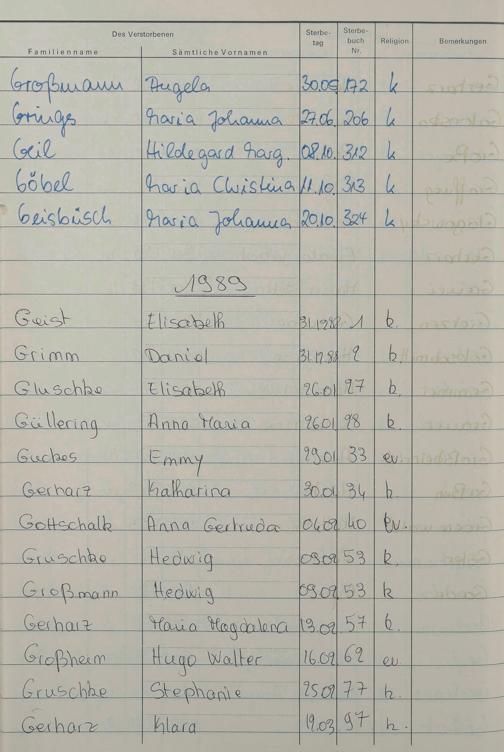 Des Verstorbenen Sterbe- tag Sterbe- buch Nr. Religion Bemerkungen
Familienname Sämtliche Vornamen
Großmann Angela 30.09 172 k
Grings Maria Johanna 27.06. 206 k
Geil Hildegard Marg. 08.10. 312 k
Göbel Maria Christina 11.10. 313 k
Geisbüsch Maria Johanna 20.10. 324 k
1989
Geist Elisabeth 31.1288 1 k.
Grimm Daniel 31.1288 2 k.
Gluschke Elisabeth 26.01 27 k.
Güllering Anna Maria 26.01 28 k.
Guckes Emmy 29.01 33 ev.
Gerharz Katharina 30.01 34 k.
Gottschalk Anna Gertruda 04.02 40 ev.
Gruschke Hedwig 09.02 53 k.
Großmann Hedwig 09.02 53 k
Gerharz Maria Magdalena 13.02 57 k.
Großheim Hugo Walter 16.02 62 ev.
Gruschke Stephanie 25.02 77 k.
Gerharz Klara 12.03 97 k.